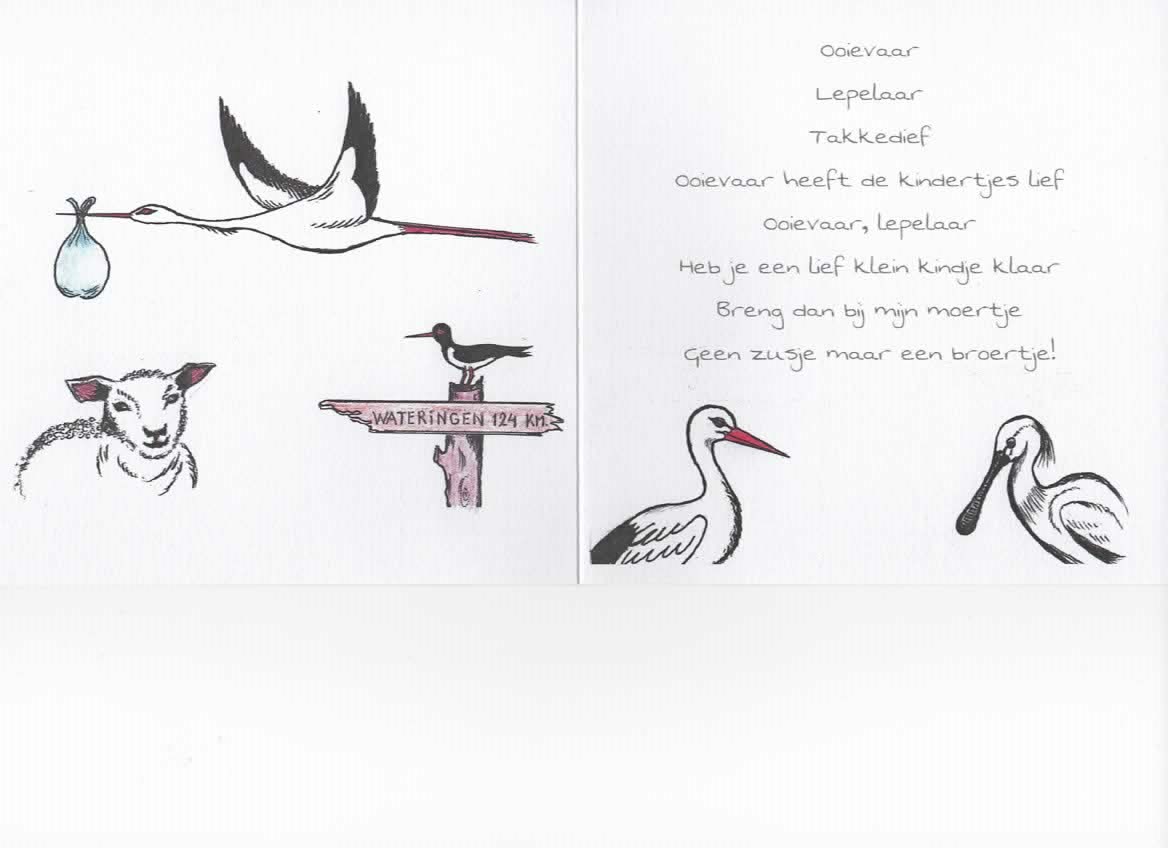 WATERINGEN 124 KM.
Ooievaar
Lepelaar
Takkedief
Ooievaar heeft de kindertjes lief
Ooievaar, lepelaar
Heb je een lief klein kindje klaar
Breng dan bij mijn moertje
Geen zusje maar een broertje!